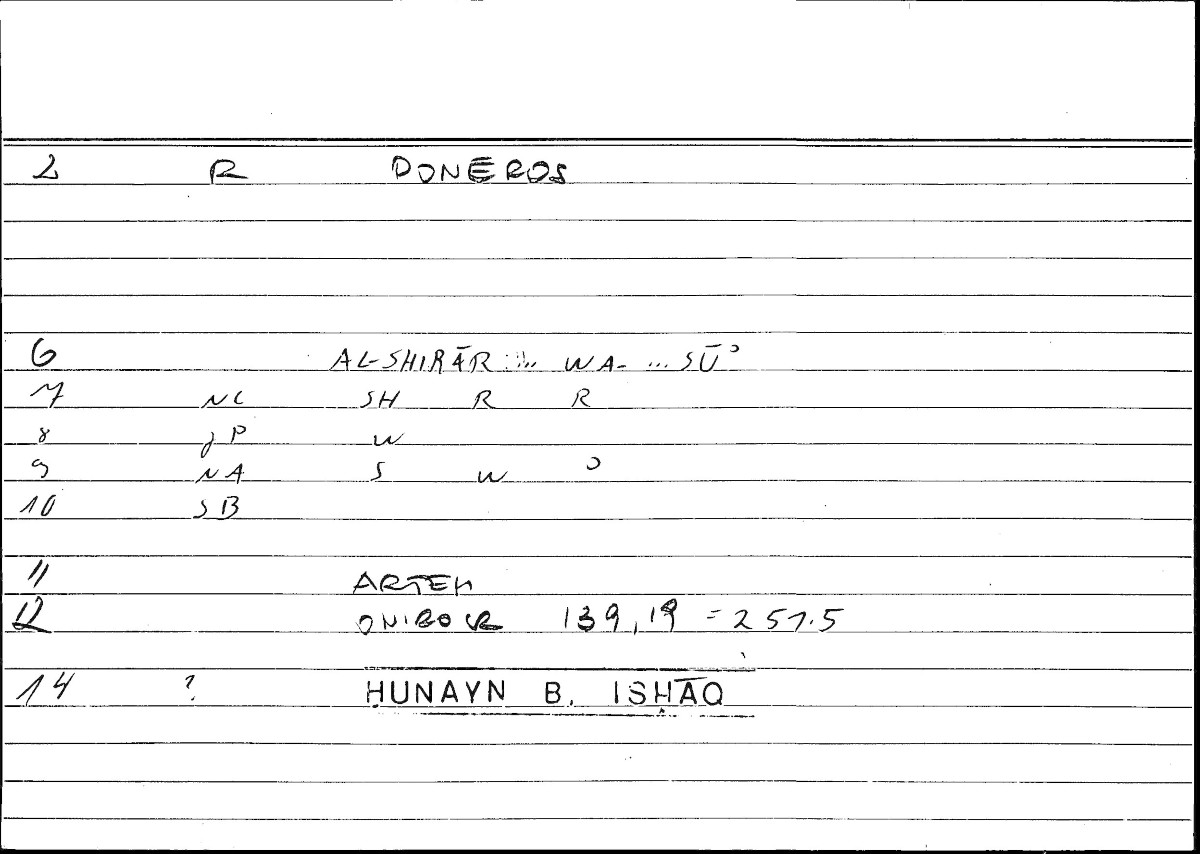 2 R PONEROS
6 AL-SHIRĀR ... WA- ... SŪʾ
7 NC SH R R
8 JP W
9 NA S W ʾ
10 SB
11 ARTEM
12 ONIROCR 139,19 = 257.5
14 ? ḤUNAYN B. ISḤĀQ